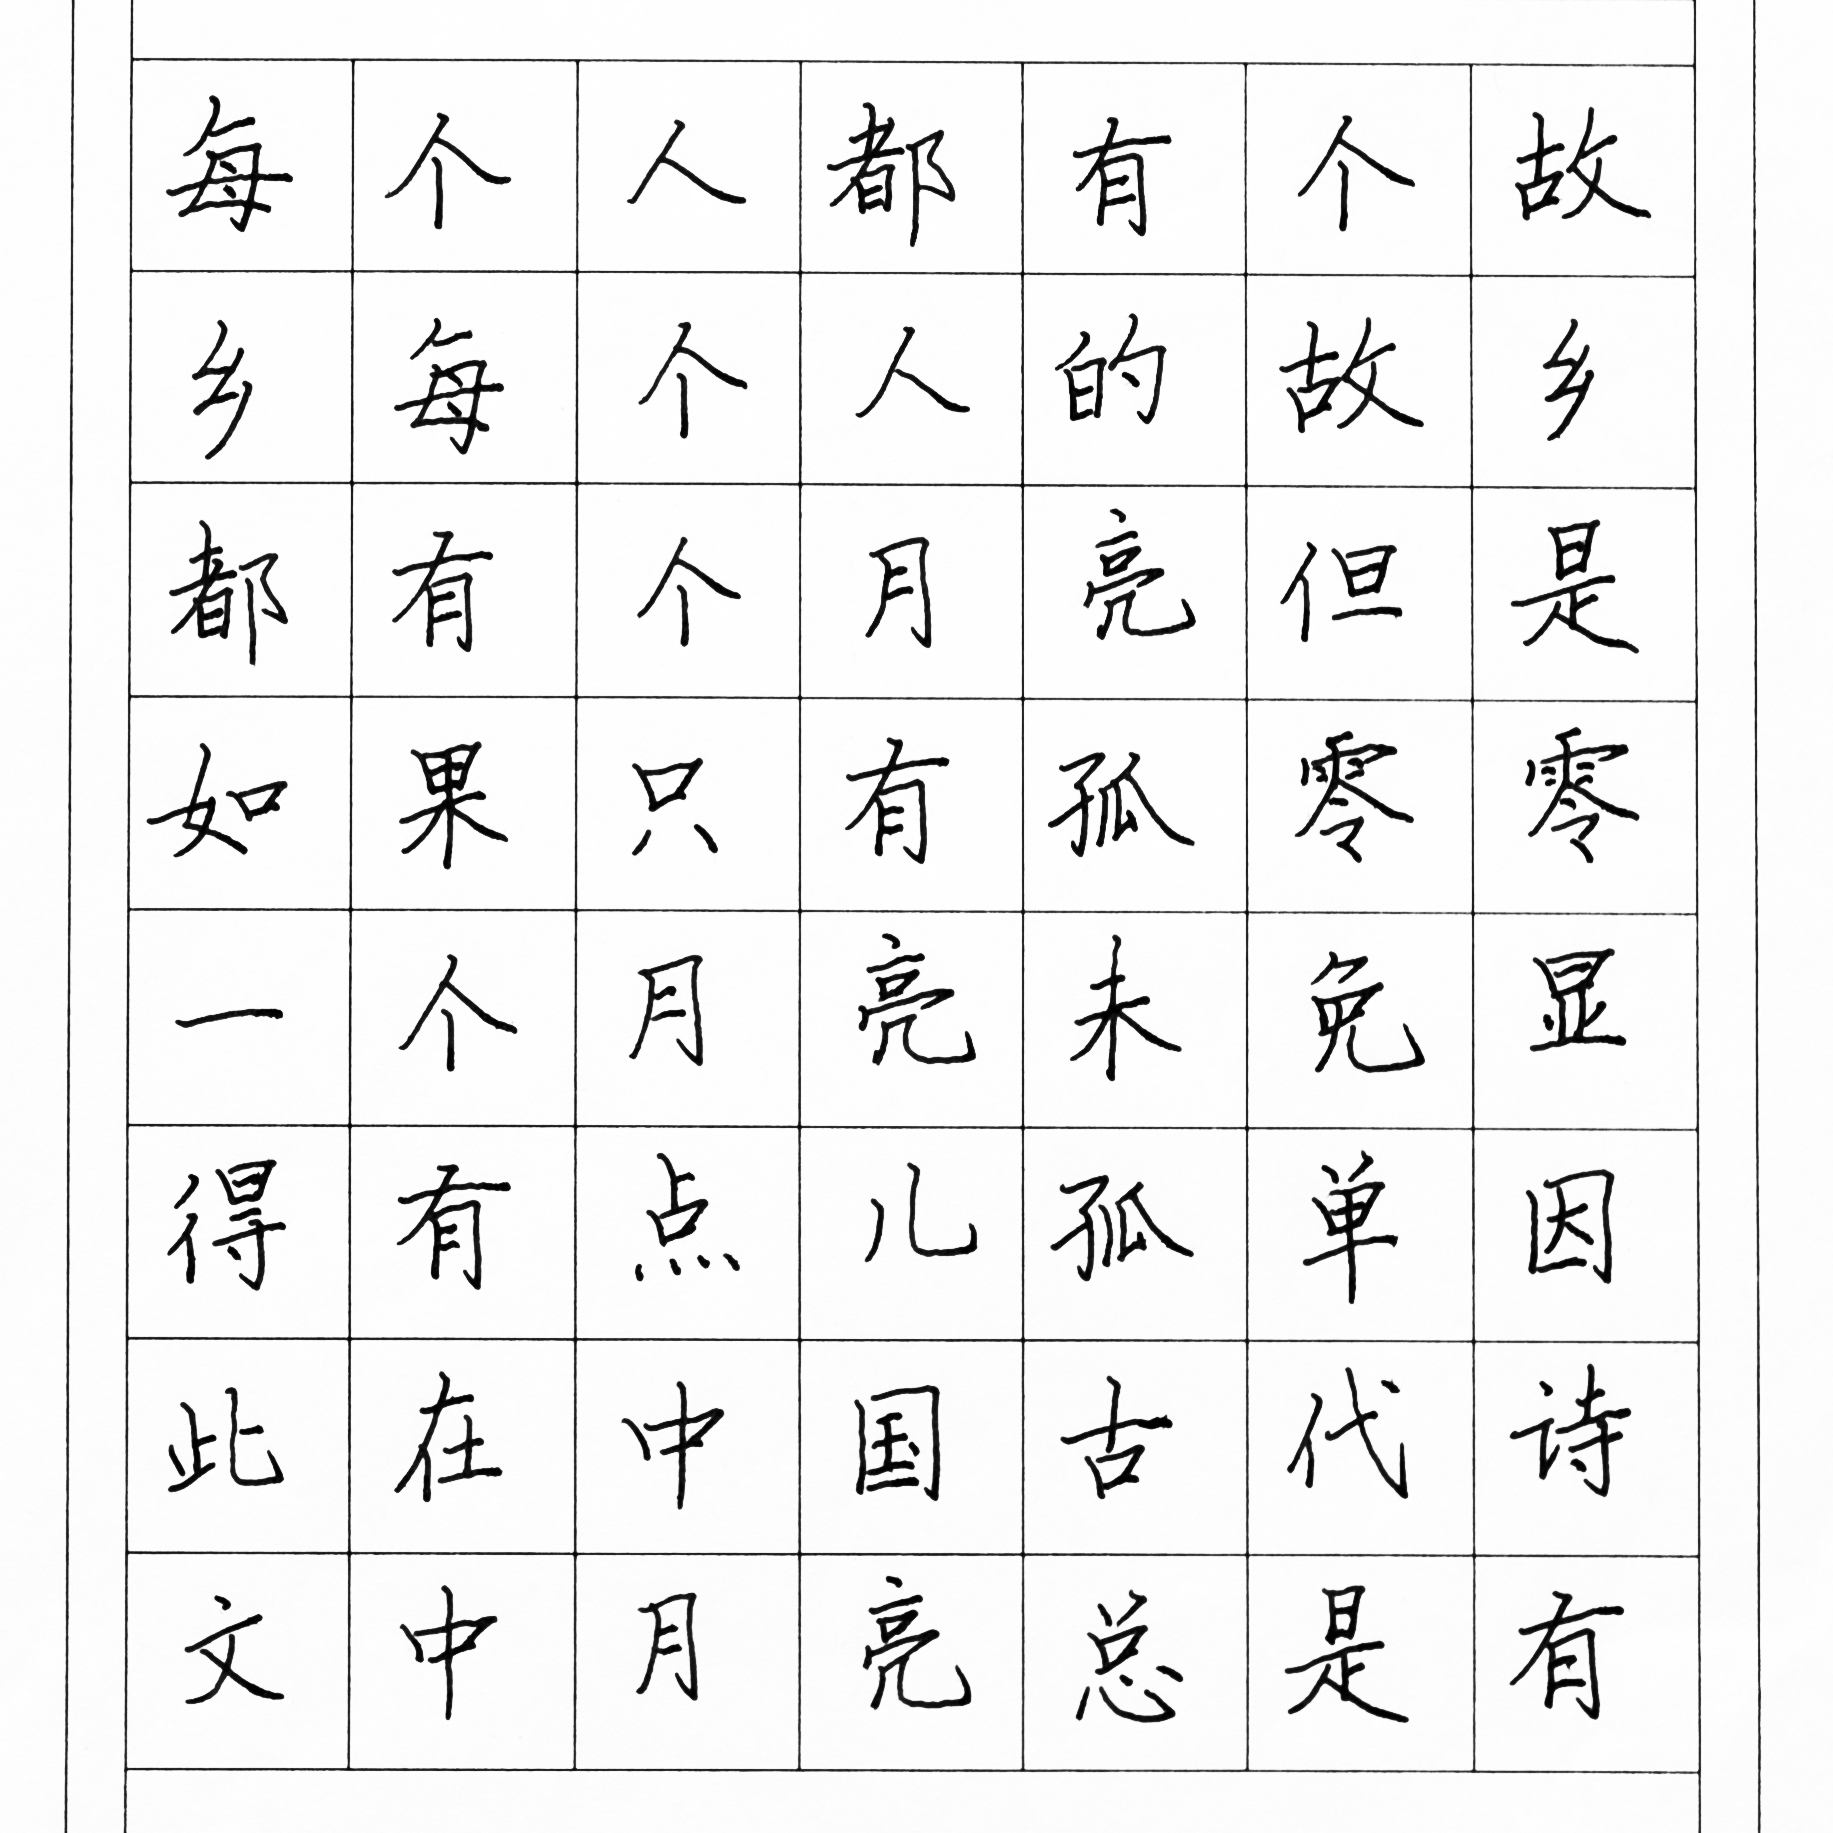 每个人都有个故
乡每个人的故乡
都有个月亮但是
如果只有孤零零
一个月亮未免显
得有点儿孤单因
此在中国古代诗
文中月亮总是有